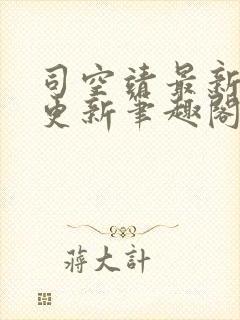 司空靖最新
更新笔趣阁
蒋大计